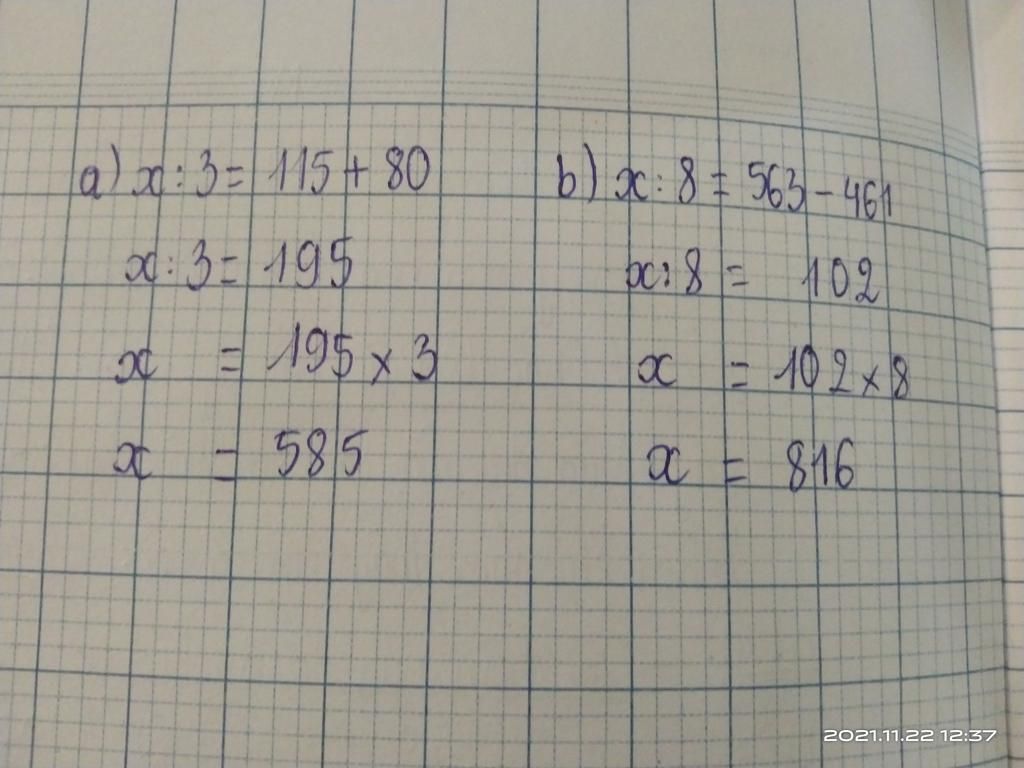 a) x : 3 = 115 + 80
x : 3 = 195
x = 195 x 3
x = 585
b) x : 8 = 563 - 461
x : 8 = 102
x = 102 x 8
x = 816
2021.11.22 12:37